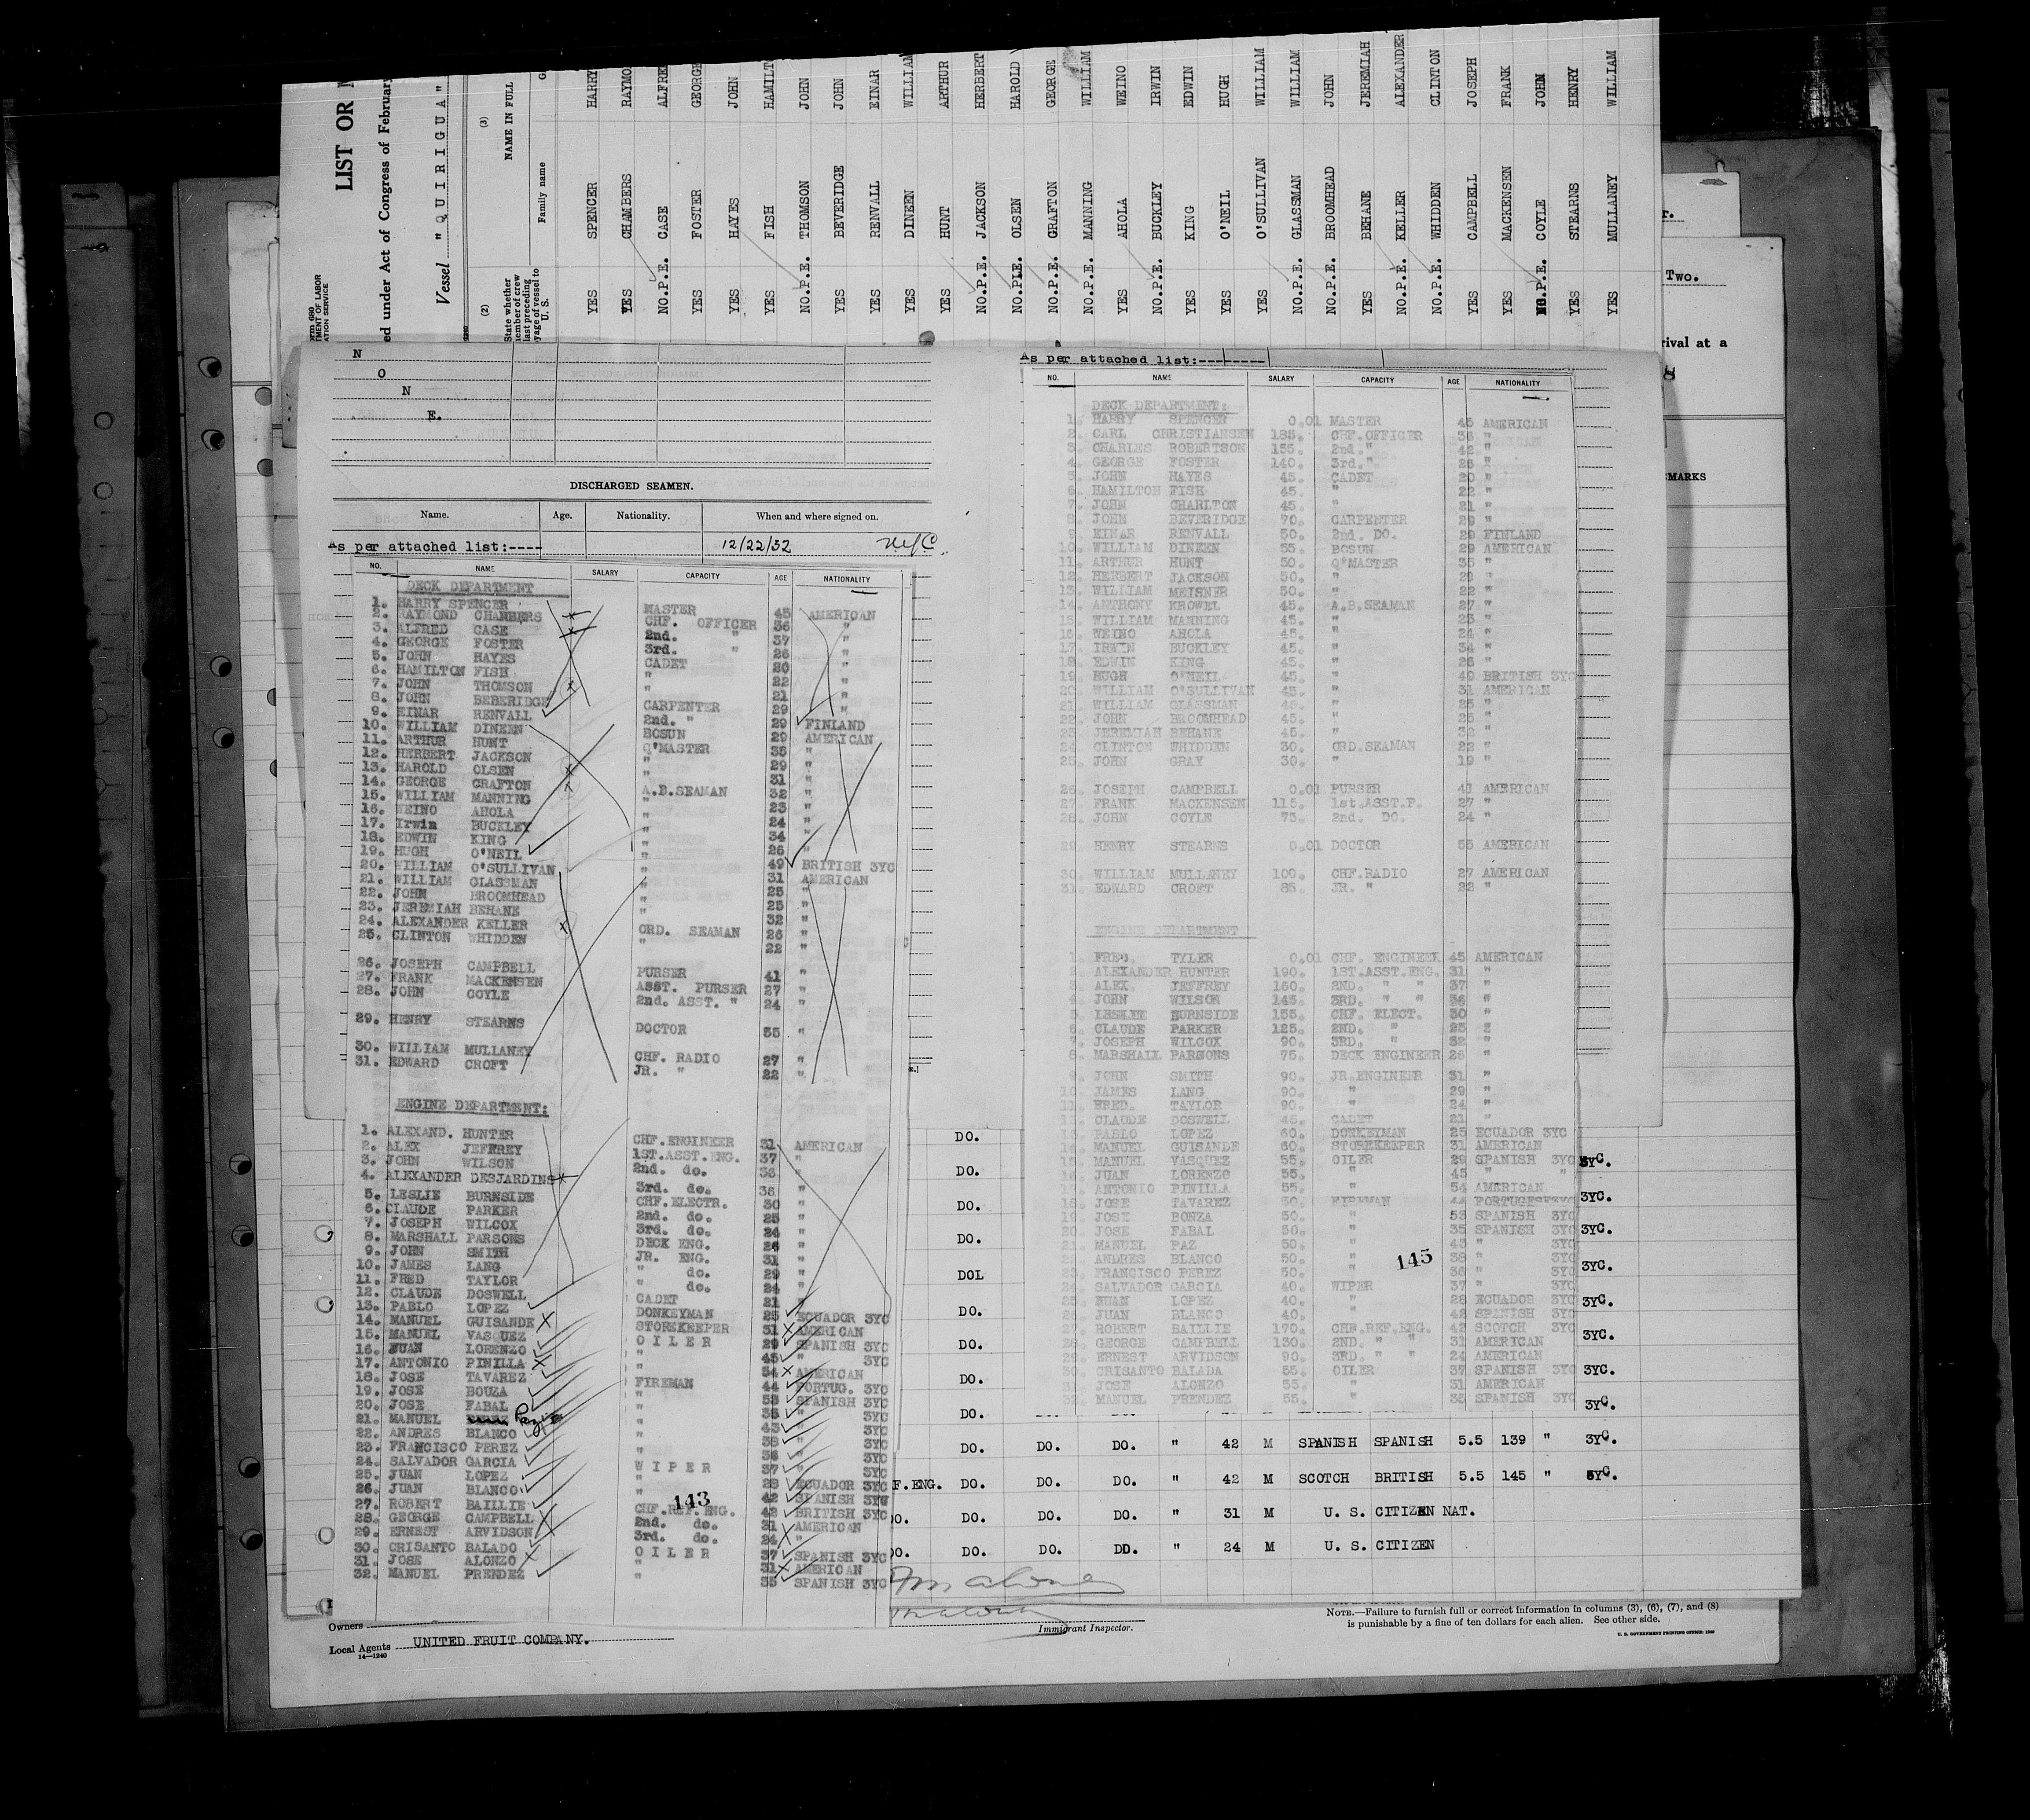 LIST OR
ed under Act of Congress of February
Vessel "QUIRIGUA"
(2) (3)
NAME IN FULL
Family name
State whether
member of crew
last preceding
voyage of vessel to
U. S.
YES SPENCER HARRY
YES CHAMBERS RAYMO
NO.P.E. CASE ALFRE
YES FOSTER GEORGE
YES HAYES JOHN
YES FISH HAMILT
NO.P.E. THOMSON JOHN
YES BEVERIDGE JOHN
YES RENVALL EINAR
YES DINEEN WILLIAM
YES HUNT ARTHUR
NO.P.E. JACKSON HERBERT
NO.P.E. OLSEN HAROLD
NO.P.E. GRAFTON GEORGE
NO.P.E. MANNING WILLIAM
YES AHOLA WEINO
NO.P.E. BUCKLEY IRWIN
YES KING EDWIN
YES O'NEIL HUGH
YES O'SULLIVAN WILLIAM
NO.P.E. GLASSMAN WILLIAM
NO.P.E. BROOMHEAD JOHN
YES BEHANE JEREMIAH
NO.P.E. KELLER ALEXANDER
NO.P.E. WHIDDEN CLINTON
YES CAMPBELL JOSEPH
YES MACKENSEN FRANK
NO.P.E. COYLE JOHN
YES STEARNS HENRY
YES MULLANEY WILLIAM
Two.
rival at a
MARKS
N
O
N
E.
DISCHARGED SEAMEN.
Name. Age. Nationality. When and where signed on.
As per attached list:---- 12/22/32 NYC.
NO. NAME SALARY CAPACITY AGE NATIONALITY
DECK DEPARTMENT
1. HARRY SPENCER MASTER 45 AMERICAN
2. RAYMOND CHAMBERS CHF. OFFICER 36 "
3. ALFRED CASE 2nd. " 37 "
4. GEORGE FOSTER 3rd. " 26 "
5. JOHN HAYES CADET 20 "
6. HAMILTON FISH " 22 "
7. JOHN THOMSON " 21 "
8. JOHN BEBERIDGE CARPENTER 29 "
9. EINAR RENVALL 2nd. " 29 FINLAND
10. WILLIAM DINEEN BOSUN 29 AMERICAN
11. ARTHUR HUNT Q'MASTER 35 "
12. HERBERT JACKSON " 29 "
13. HAROLD OLSEN " 31 "
14. GEORGE GRAFTON A.B.SEAMAN 32 "
15. WILLIAM MANNING " 23 "
16. WEINO AHOLA " 24 "
17. Irwin BUCKLEY " 34 "
18. EDWIN KING " 26 "
19. HUGH O'NEIL " 49 BRITISH 3YC
20. WILLIAM O'SULLIVAN " 31 AMERICAN
21. WILLIAM GLASSMAN " 25 "
22. JOHN BROOMHEAD " 25 "
23. JEREMIAH BEHANE " 32 "
24. ALEXANDER KELLER ORD. SEAMAN 26 "
25. CLINTON WHIDDEN " 22 "
26. JOSEPH CAMPBELL PURSER 41 "
27. FRANK MACKENSEN ASST. PURSER 27 "
28. JOHN COYLE 2nd. ASST. " 24 "
29. HENRY STEARNS DOCTOR 55 "
30. WILLIAM MULLANEY CHF. RADIO 27 "
31. EDWARD CROFT JR. " 22 "
ENGINE DEPARTMENT:
1. ALEXAND. HUNTER CHF.ENGINEER 31 AMERICAN
2. ALEX JEFFREY 1ST.ASST.ENG. 37 "
3. JOHN WILSON 2nd. do. 36 "
4. ALEXANDER DESJARDINS 3rd. do. 35 "
5. LESLIE BURNSIDE CHF.ELECTR. 30 "
6. CLAUDE PARKER 2nd. do. 25 "
7. JOSEPH WILCOX 3rd. do. 24 "
8. MARSHALL PARSONS DECK ENG. 26 "
9. JOHN SMITH JR. ENG. 31 "
10. JAMES LANG " do. 29 "
11. FRED TAYLOR " do. 24 "
12. CLAUDE DOSWELL CADET 21 "
13. PABLO LOPEZ DONKEYMAN 25 ECUADOR 3YC
14. MANUEL GUISANDE STOREKEEPER 31 AMERICAN
15. MANUEL VASQUEZ OILER 29 SPANISH 3YC
16. JUAN LORENZO " 45 " 3YC
17. ANTONIO PINILLA " 54 AMERICAN
18. JOSE TAVAREZ FIREMAN 44 PORTUG. 3YC
19. JOSE BOUZA " 53 SPANISH 3YC
20. JOSE FABAL " 35 " 3YC
21. MANUEL Paz " 43 " 3YC
22. ANDRES BLANCO " 38 " 3YC
23. FRANCISCO PEREZ " 36 " 3YC
24. SALVADOR GARCIA WIPER 37 " 3YC
25. JUAN LOPEZ " 28 ECUADOR 3YC
26. JUAN BLANCO " 42 SPANISH 3YC
27. ROBERT BAILLIE CHF.REF.ENG. 42 BRITISH 3YC
28. GEORGE CAMPBELL 2nd. do. 31 AMERICAN
29. ERNEST ARVIDSON 3rd. do. 24 "
30. CRISANTO BALADO OILER 37 SPANISH 3YC
31. JOSE ALONZO " 31 AMERICAN
32. MANUEL PRENDEZ " 35 SPANISH 3YC
143
As per attached list:--------
NO. NAME SALARY CAPACITY AGE NATIONALITY
DECK DEPARTMENT:
1. HARRY SPENCER 0.01 MASTER 45 AMERICAN
2. CARL CHRISTIANSEN 185. CHF.OFFICER 36 "
3. CHARLES ROBERTSON 155. 2nd. " 42 "
4. GEORGE FOSTER 140. 3rd. " 26 "
5. JOHN HAYES 45. CADET 20 "
6. HAMILTON FISH 45. " 22 "
7. JOHN CHARLTON 45. " 21 "
8. JOHN BEVERIDGE 70. CARPENTER 29 "
9. EINAR RENVALL 50. 2nd. DO. 29 FINLAND
10. WILLIAM DINEEN 55. BOSUN 29 AMERICAN
11. ARTHUR HUNT 50. Q'MASTER 35 "
12. HERBERT JACKSON 50. " 29 "
13. WILLIAM MEISNER 50. " 22 "
14. ANTHONY KROWEL 45. A.B.SEAMAN 27 "
15. WILLIAM MANNING 45. " 23 "
16. WEINO AHOLA 45. " 24 "
17. IRWIN BUCKLEY 45. " 34 "
18. EDWIN KING 45. " 26 "
19. HUGH O'NEIL 45. " 49 BRITISH 3YC
20. WILLIAM O'SULLIVAN 45. " 31 AMERICAN
21. WILLIAM GLASSMAN 45. " 25 "
22. JOHN BROOMHEAD 45. " 25 "
23. JEREMIAH BEHANE 45. " 32 "
24. CLINTON WHIDDEN 30. ORD.SEAMAN 22 "
25. JOHN GRAY 30. " 19 "
26. JOSEPH CAMPBELL 0.01 PURSER 41 AMERICAN
27. FRANK MACKENSEN 115. 1st.ASST.P. 27 "
28. JOHN COYLE 75. 2nd. DO. 24 "
29. HENRY STEARNS 0.01 DOCTOR 55 AMERICAN
30. WILLIAM MULLANEY 100. CHF.RADIO 27 AMERICAN
31. EDWARD CROFT 85. JR. " 22 "
ENGINE DEPARTMENT
1. FRED. TYLER 0.01 CHF. ENGINEER 45 AMERICAN
2. ALEXANDER HUNTER 190. 1ST.ASST.ENG. 31 "
3. ALEX. JEFFREY 160. 2ND. " " 37 "
4. JOHN WILSON 145. 3RD. " " 36 "
5. LESLIE BURNSIDE 155. CHF. ELECT. 30 "
6. CLAUDE PARKER 125. 2ND. " 25 "
7. JOSEPH WILCOX 90. 3RD. " 52 "
8. MARSHALL PARSONS 75. DECK ENGINEER 26 "
9. JOHN SMITH 90. JR.ENGINEER 31 "
10. JAMES LANG 90. " 29 "
11. FRED. TAYLOR 90. " 24 "
12. CLAUDE DOSWELL 45. CADET 23 "
13. PABLO LOPEZ 60. DONKEYMAN 25 ECUADOR 3YC
14. MANUEL GUISANDE 60. STOREKEEPER 31 AMERICAN
15. MANUEL VASQUEZ 55. OILER 29 SPANISH 3YC
16. JUAN LORENZO 55. " 45 " "
17. ANTONIO PINILLA 55. " 54 AMERICAN
18. JOSE TAVAREZ 50. FIREMAN 44 PORTUGESE3YC
19. JOSE BONZA 50. " 53 SPANISH 3YC
20. JOSE FABAL 50. " 35 SPANISH 3YC
21. MANUEL PAZ 50. " 43 " 3YC
22. ANDRES BLANCO 50. " 38 " 3YC
23. FRANCISCO PEREZ 50. " 36 " 3YC
24. SALVADOR GARCIA 40. WIPER 37 " 3YC
25. JUAN LOPEZ 40. " 28 ECUADOR 3YC
26. JUAN BLANCO 40. " 42 SPANISH 3YC
27. ROBERT BAILLIE 170. CHF.REF.ENG. 42 SCOTCH 3YC
28. GEORGE CAMPBELL 130. 2ND. " " 31 AMERICAN
29. ERNEST ARVIDSON 90. 3RD. " " 24 AMERICAN
30. CRISANTO BALADA 55. OILER 37 SPANISH 3YC
31. JOSE ALONZO 55. " 31 AMERICAN
32. MANUEL PRENDEZ 55. " 35 SPANISH 3YC
145
DO.
DO. 3YC.
DO. 3YC.
DO. 3YC.
DOL 3YC.
DO. 3YC.
DO. 3YC.
DO. 3YC.
DO. 3YC.
DO. DO. DO. " 42 M SPANISH SPANISH 5.5 139 " 3YC.
F.ENG. DO. DO. DO. " 42 M SCOTCH BRITISH 5.5 145 " 3YC.
DO. DO. DO. DO. " 31 M U. S. CITIZEN NAT.
DO. DO. DO. DD. " 24 M U. S. CITIZEN
Owners
Local Agents UNITED FRUIT COMPANY.
14—1240
Immigrant Inspector.
NOTE.—Failure to furnish full or correct information in columns (3), (6), (7), and (8)
is punishable by a fine of ten dollars for each alien. See other side.
U. S. GOVERNMENT PRINTING OFFICE: 1930